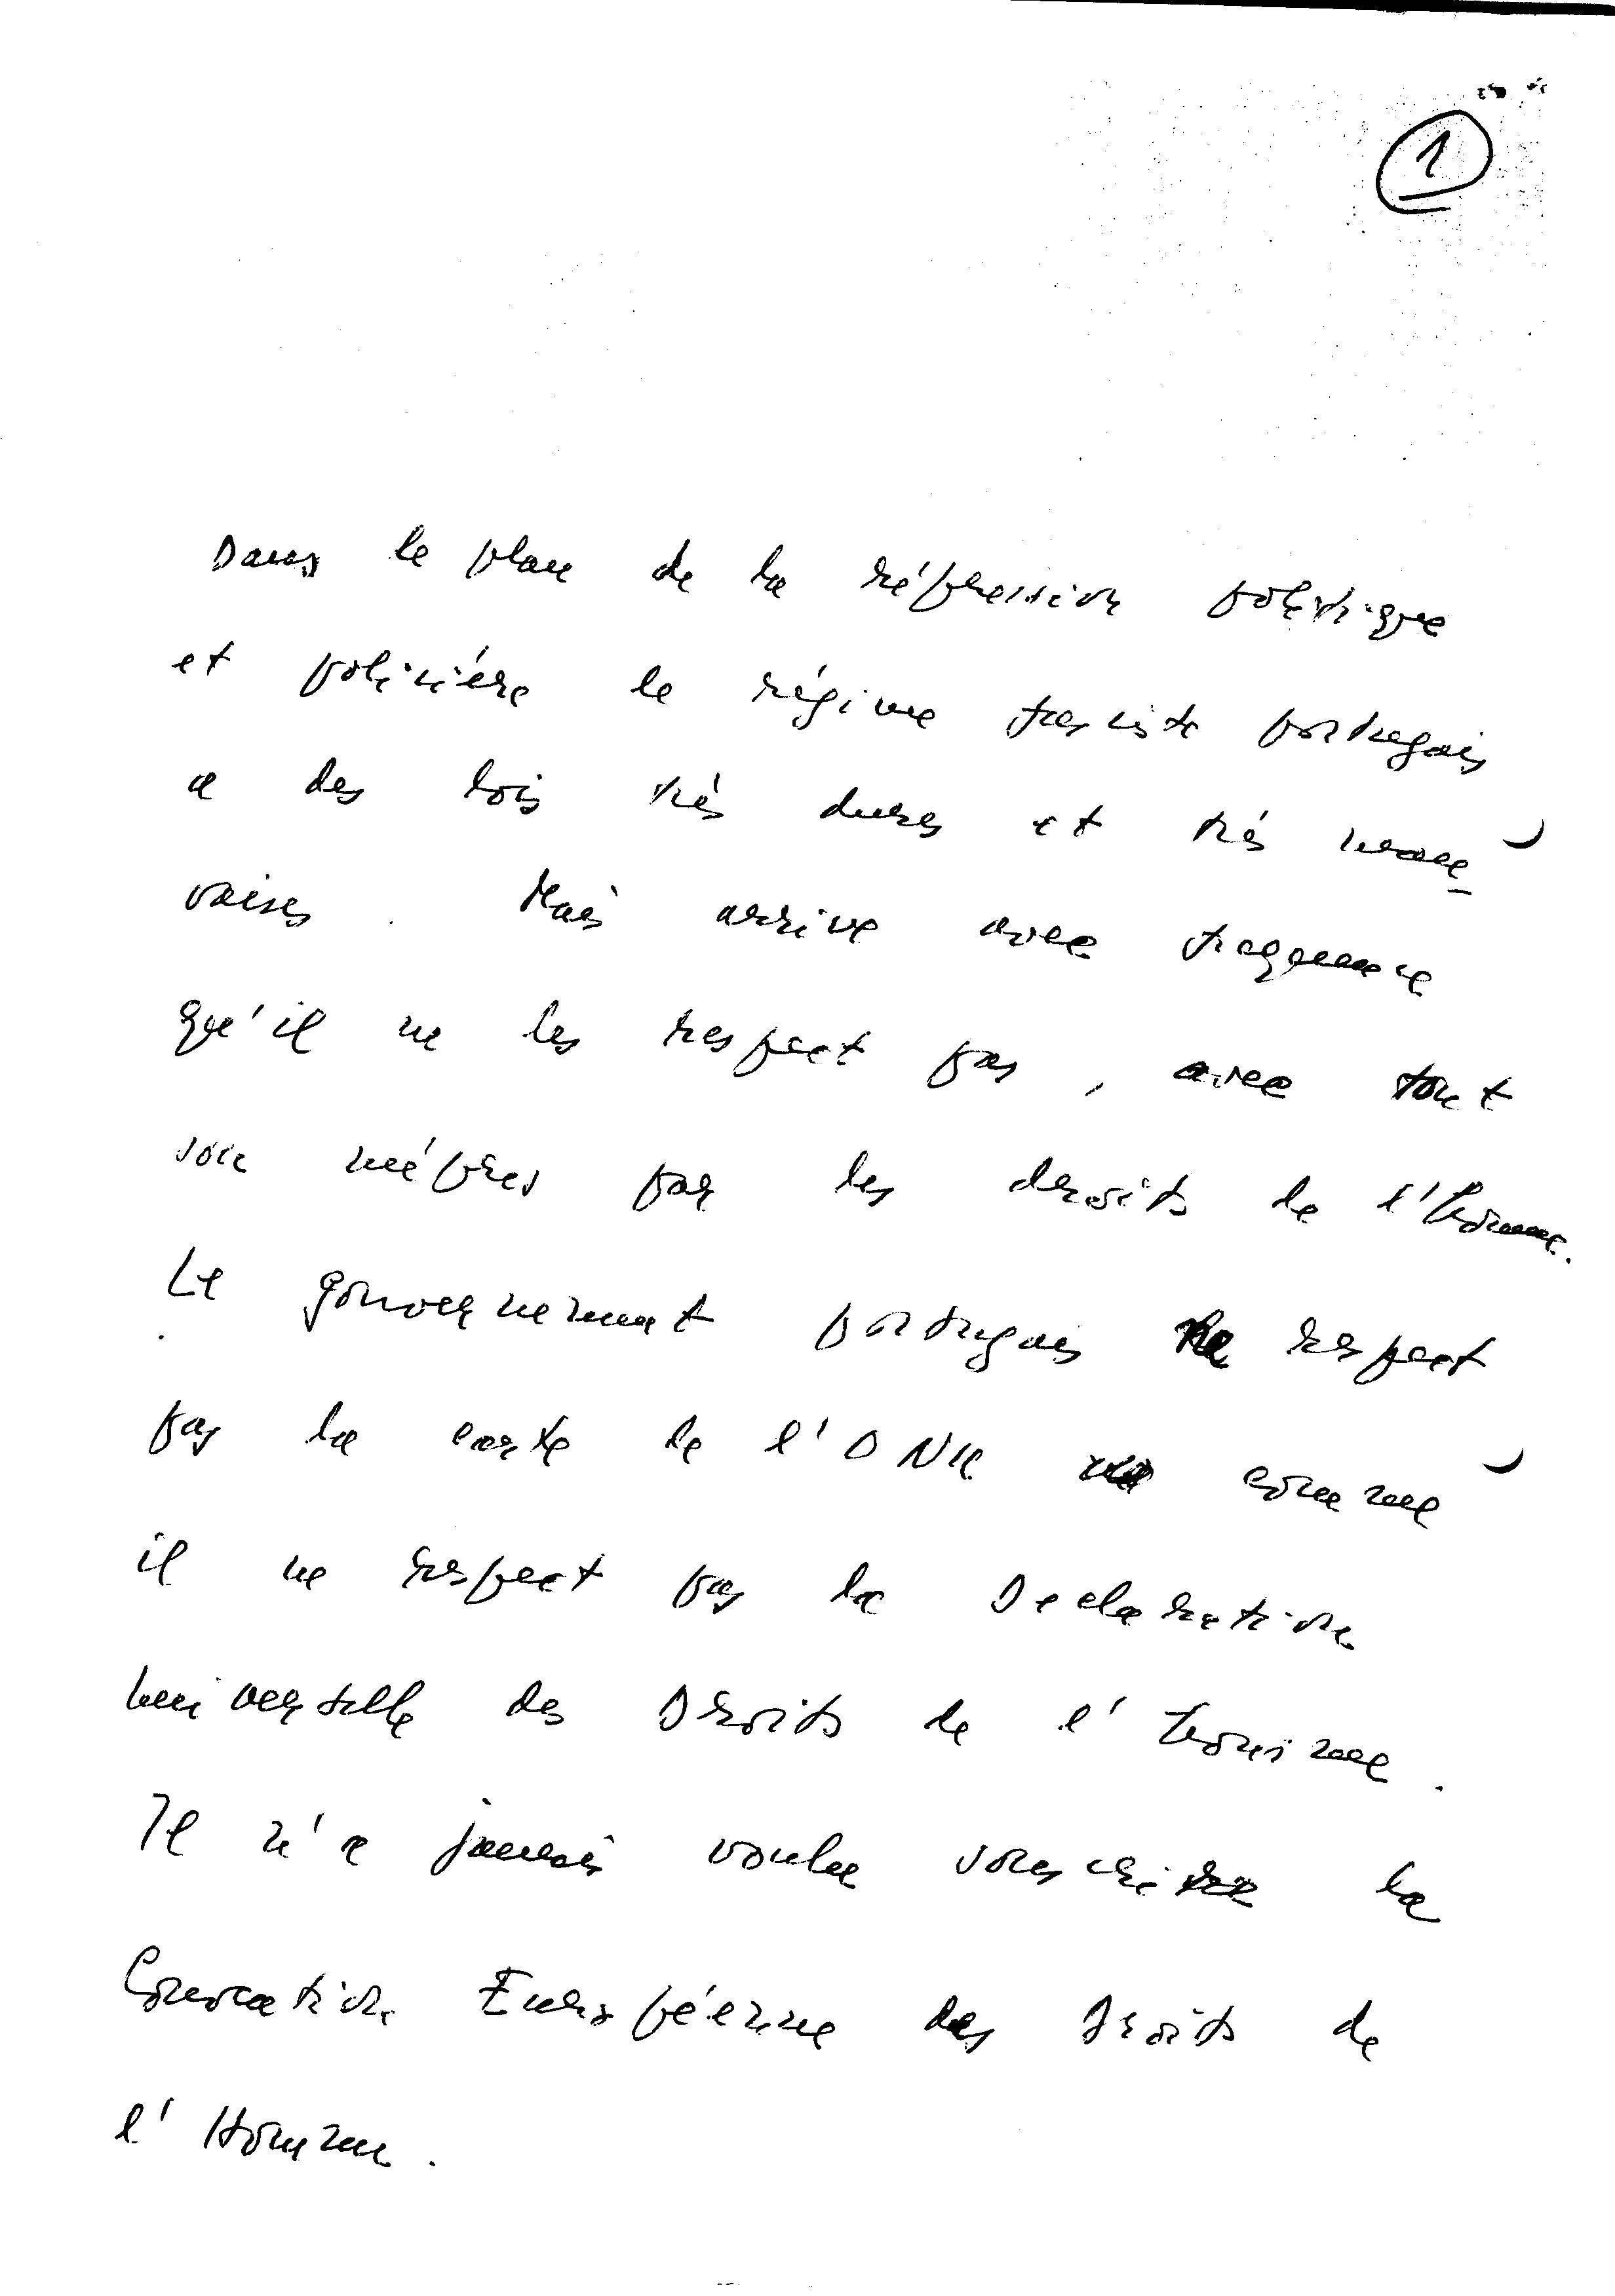 1
Dans le plan de la répression politique
et policiére le régime fasciste portugais
a des lois très dures et trés mau-
vaises. Mais arrive avec frequence
qu'il ne les respect pas, avec tout
son mépris par les droits de l'homme.
Le gouvernement portugais ne respect
pas la carte de l'ONU comme
il ne respect pas la Declaration
Universelle des Droits de l'homme.
Il n'a jamais voulu souscrire la
Européenne des Droits de
l'Homme.